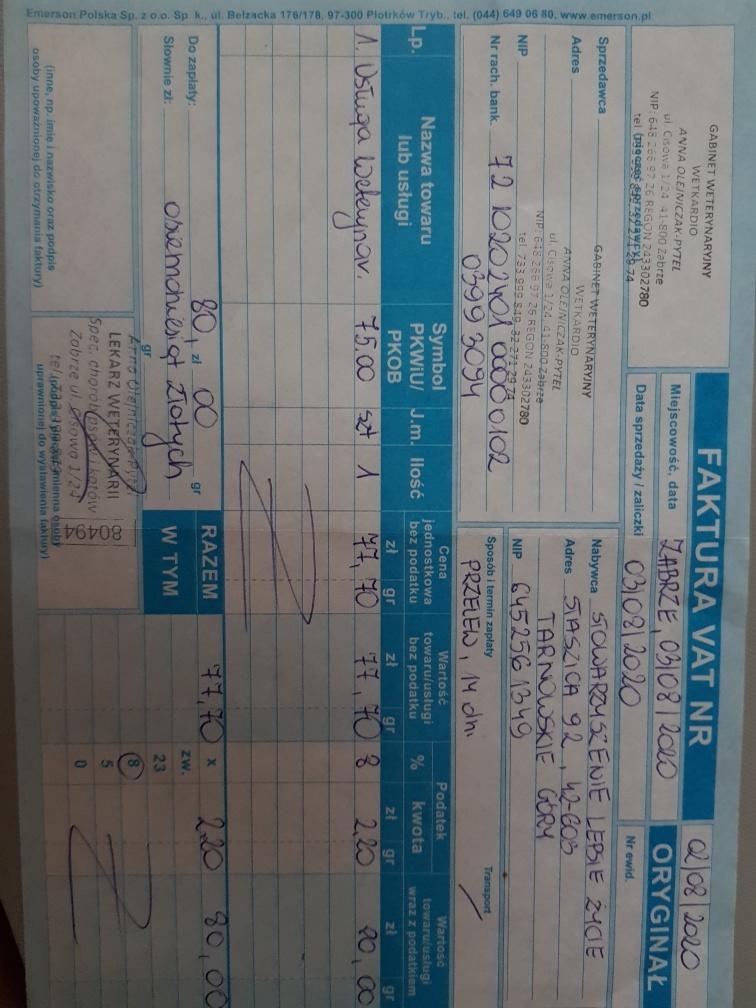 GABINET WETERYNARYJNY
WETKARDIO
ANNA OLEJNICZAK-PYTEL
ul. Cisowa 1/24 41-800 Zabrze
NIP: 648 266 97 26 REGON 243302780
(pieczęć sprzedawcy)
FAKTURA VAT NR
02/08/2020
ORYGINAŁ
Miejscowość, data
ZABRZE, 03/08/2020
Data sprzedaży / zaliczki
03/08/2020
Nr ewid.
Sprzedawca
GABINET WETERYNARYJNY
WETKARDIO
Adres
ANNA OLEJNICZAK-PYTEL
ul. Cisowa 1/24 41-800 Zabrze
NIP: 648 266 97 26 REGON 243302780
tel. 733 999 849, 32-271 29 74
NIP
Nr rach. bank.
72 1020 2401 0000 0102
0399 3094
Nabywca STOWARZYSZENIE LEPSZE ŻYCIE
Adres STASZICA 92, 42-603
TARNOWSKIE GÓRY
NIP 6452561349
Sposób i termin zapłaty
PRZELEW, 14 dni
Transport
Lp.
Nazwa towaru lub usługi
Symbol PKWiU/ PKOB
J.m.
Ilość
Cena jednostkowa bez podatku
zł gr
Wartość towaru/usługi bez podatku
zł gr
Podatek
% kwota
zł gr
Wartość towaru/usługi wraz z podatkiem
zł gr
1. Usługa weterynar. 75.00 szt 1 77,70 77,70 8 2,20 80,00
Do zapłaty: 80, zł 00 gr
Słownie zł: osiemdziesiąt złotych
gr
RAZEM 77,70 x 2,20 80,00
W TYM
zw.
23
8
5
0
(inne, np. imię i nazwisko oraz podpis
osoby upoważnionej do otrzymania faktury)
LEKARZ WETERYNARII
Spec. chorób psów i kotów
Zabrze ul. Cisowa 1/24
80494
uprawnionej do wystawienia faktury)
Emerson Polska Sp. z o.o. Sp. k., ul. Bełzacka 176/178, 97-300 Piotrków Tryb., tel. (044) 649 06 80, www.emerson.pl